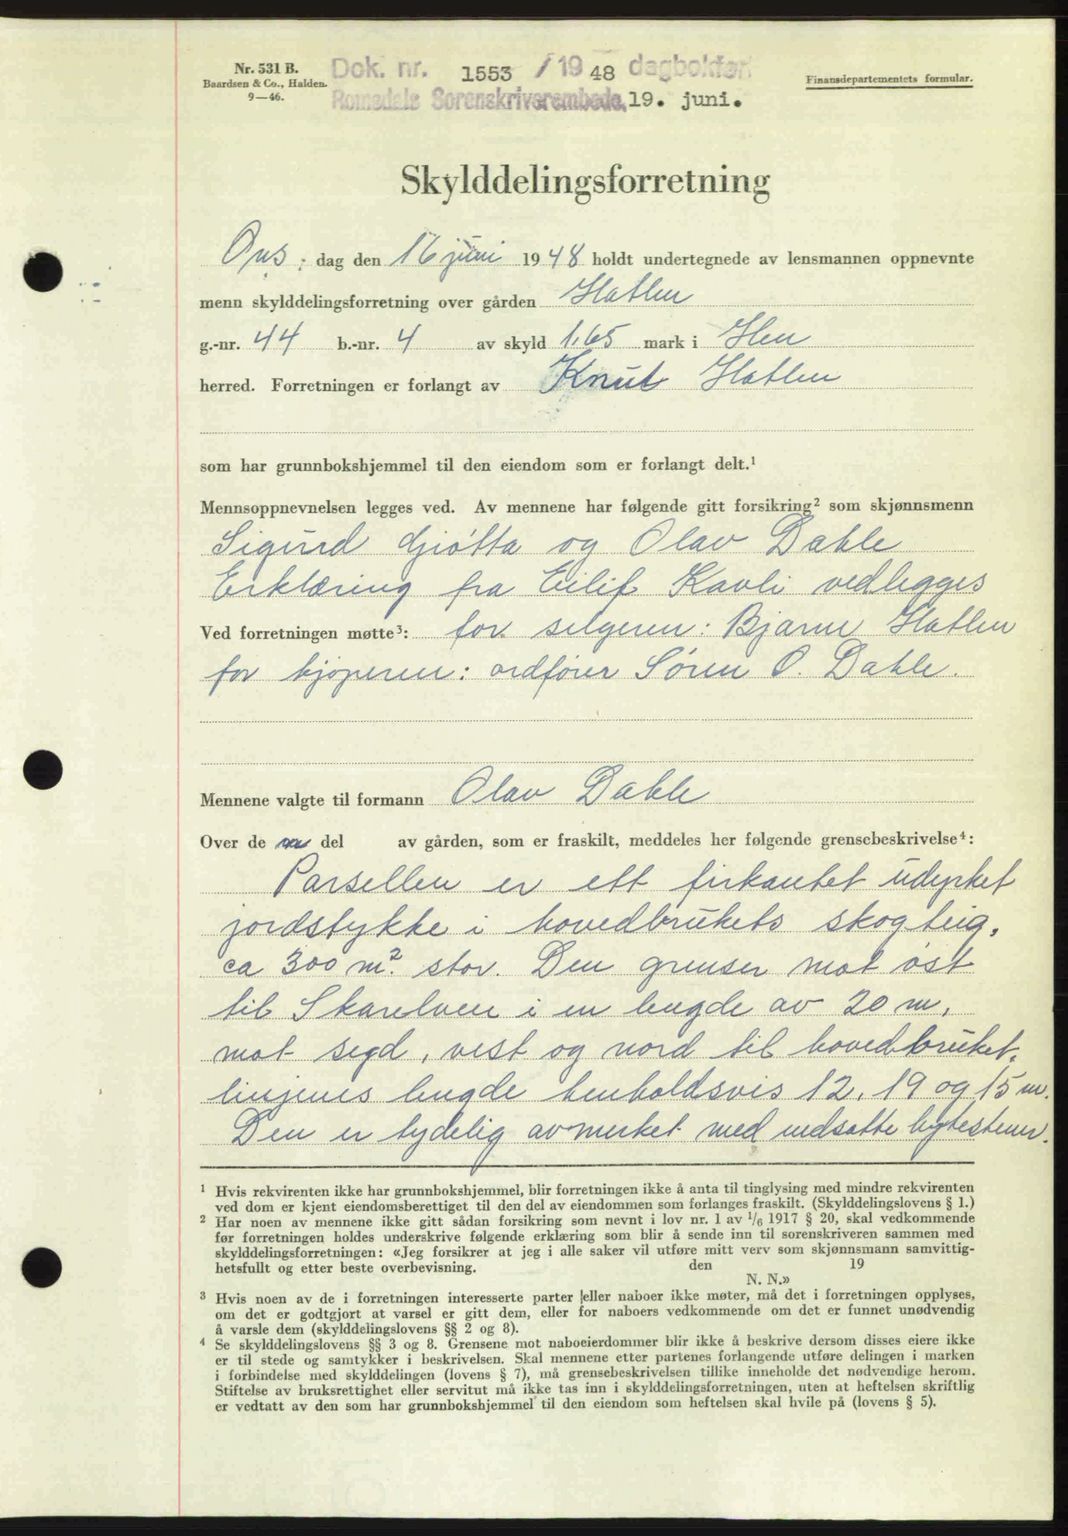 Nr. 531 B.
Baardsen & Co., Halden.
9—46.
Dok. nr. 1553 / 1948 dagbokført
Romsdals Sorenskriverembede, 19. juni.
Finansdepartementets formular.
Skylddelingsforretning
Ons. dag den 16 juni 1948 holdt undertegnede av lensmannen oppnevnte
menn skylddelingsforretning over gården Hatlen
g.-nr. 44 b.-nr. 4 av skyld 1.65 mark i Hen
herred. Forretningen er forlangt av Knut Hatlen
som har grunnbokshjemmel til den eiendom som er forlangt delt.¹
Mennsoppnevnelsen legges ved. Av mennene har følgende gitt forsikring² som skjønnsmenn
Sigurd Gjøtta og Olav Dahle
Erklæring fra Eilif Kavli vedlegges
Ved forretningen møtte³: for selgeren: Bjarne Hatlen
for kjøperen: ordfører Søren O. Dahle.
Mennene valgte til formann Olav Dahle
Over de del av gården, som er fraskilt, meddeles her følgende grensebeskrivelse⁴:
Parsellen er ett firkantet udyrket
jordstykke i hovedbrukets skogteig,
ca 300 m². stor. Den grenser mot øst
til Skarelven i en lengde av 20 m,
mot syd, vest og nord til hovedbruket,
linjenes lengde henholdsvis 12, 19 og 15 m.
Den er tydelig avmerket med nedsatte bytestener.
¹ Hvis rekvirenten ikke har grunnbokshjemmel, blir forretningen ikke å anta til tinglysing med mindre rekvirenten
ved dom er kjent eiendomsberettiget til den del av eiendommen som forlanges fraskilt. (Skylddelingslovens § 1.)
² Har noen av mennene ikke gitt sådan forsikring som nevnt i lov nr. 1 av 1/6 1917 § 20, skal vedkommende
før forretningen holdes underskrive følgende erklæring som blir å sende inn til sorenskriveren sammen med
skylddelingsforretningen: «Jeg forsikrer at jeg i alle saker vil utføre mitt verv som skjønnsmann samvittig-
hetsfullt og etter beste overbevisning. den 19
N. N.»
³ Hvis noen av de i forretningen interesserte parter eller naboer ikke møter, må det i forretningen opplyses,
om det er godtgjort at varsel er gitt dem, eller for naboers vedkommende om det er funnet unødvendig
å varsle dem (skylddelingslovens §§ 2 og 8).
⁴ Se skylddelingslovens §§ 3 og 8. Grensene mot naboeierdommer blir ikke å beskrive dersom disses eiere ikke
er til stede og samtykker i beskrivelsen. Skal mennene etter partenes forlangende utføre delingen i marken
i forbindelse med skylddelingen (lovens § 7), må grensebeskrivelsen tillike inneholde det nødvendige herom.
Stiftelse av bruksrettighet eller servitut må ikke tas inn i skylddelingsforretningen, uten at heftelsen skriftlig
er vedtatt av den som har grunnbokshjemmel til den eiendom som heftelsen skal hvile på (lovens § 5).